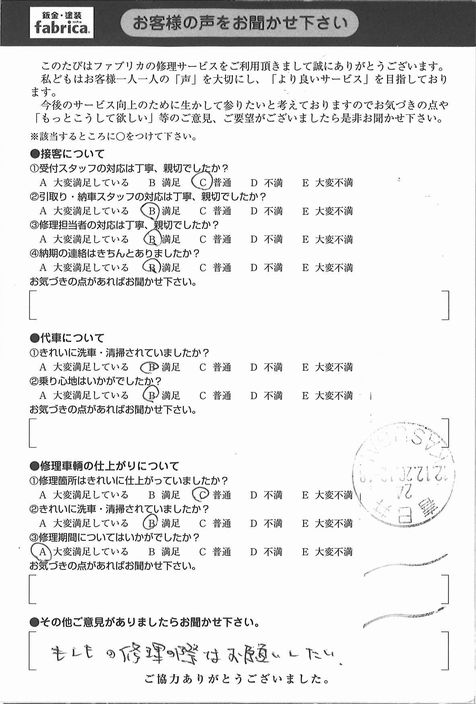 鈑金・塗装
fabrica.
お客様の声をお聞かせ下さい
このたびはファブリカの修理サービスをご利用頂きまして誠にありがとうございます。
私どもはお客様一人一人の「声」を大切にし、「より良いサービス」を目指しており
ます。
今後のサービス向上のために生かして参りたいと考えておりますのでお気づきの点や
「もっとこうして欲しい」等のご意見、ご要望がございましたら是非お聞かせ下さい。
※該当するところに○をつけて下さい。
●接客について
①受付スタッフの対応は丁寧、親切でしたか？
A 大変満足している B 満足 C 普通 D 不満 E 大変不満
②引取り・納車スタッフの対応は丁寧、親切でしたか？
A 大変満足している B 満足 C 普通 D 不満 E 大変不満
③修理担当者の対応は丁寧、親切でしたか？
A 大変満足している B 満足 C 普通 D 不満 E 大変不満
④納期の連絡はきちんとありましたか？
A 大変満足している B 満足 C 普通 D 不満 E 大変不満
お気づきの点があればお聞かせ下さい。
●代車について
①きれいに洗車・清掃されていましたか？
A 大変満足している B 満足 C 普通 D 不満 E 大変不満
②乗り心地はいかがでしたか？
A 大変満足している B 満足 C 普通 D 不満 E 大変不満
お気づきの点があればお聞かせ下さい。
●修理車輌の仕上がりについて
①修理箇所はきれいに仕上がっていましたか？
A 大変満足している B 満足 C 普通 D 不満 E 大変不満
②きれいに洗車・清掃されていましたか？
A 大変満足している B 満足 C 普通 D 不満 E 大変不満
③修理期間についてはいかがでしたか？
A 大変満足している B 満足 C 普通 D 不満 E 大変不満
お気づきの点があればお聞かせ下さい。
●その他ご意見がありましたらお聞かせ下さい。
もしもの修理の際はお願いしたい。
ご協力ありがとうございました。